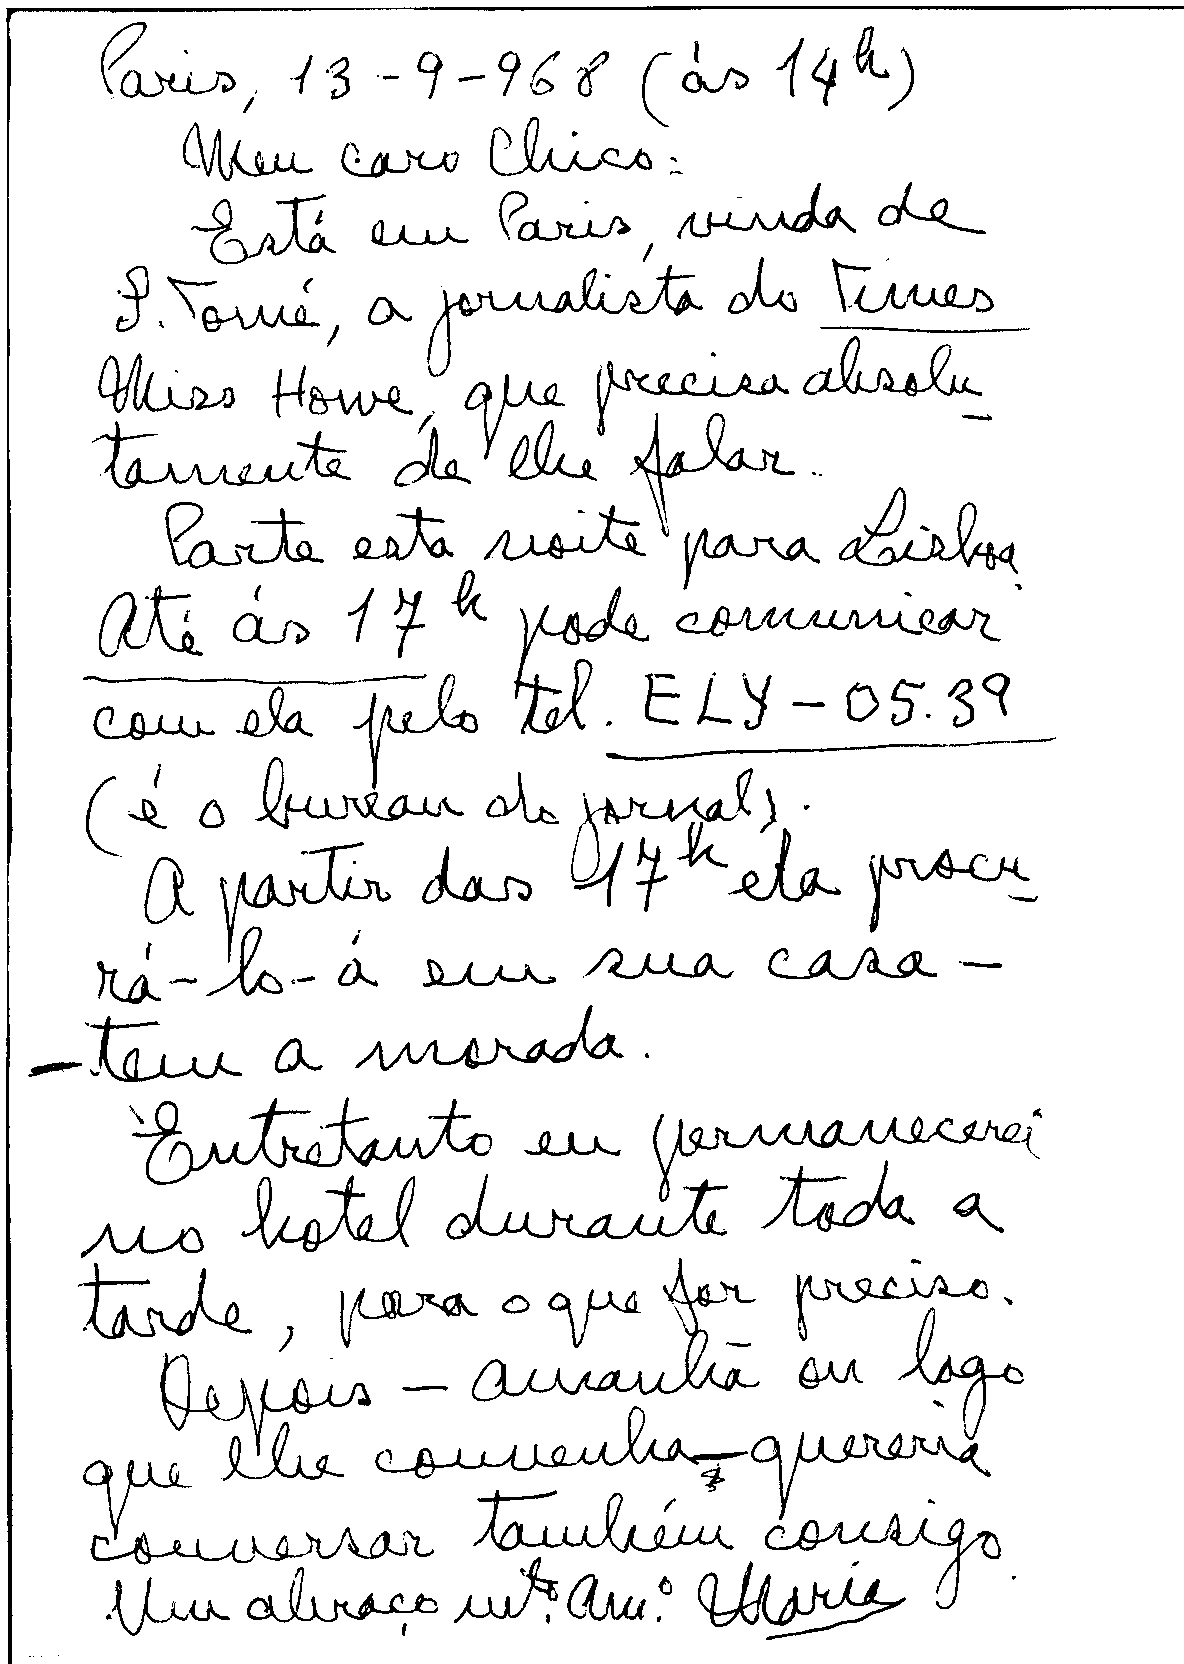 Paris, 13-9-968 (ás 14h)
Meu caro Chico:
Está em Paris, vinda de
S. Tomé, a jornalista do Times
Miss Howe, que precisa absolu-
tamente de lhe falar.
Parte esta noite para Lisboa.
Até ás 17h pode comunicar
com ela pelo tel. ELY-05.39
(é o bureau do jornal).
A partir das 17h ela procu-
rá-lo-á em sua casa -
- tem a morada.
Entretanto eu permanecerei
no hotel durante toda a
tarde, para o que for preciso.
Depois - amanhã ou logo
que lhe convenha - quereria
conversar também consigo.
Um abraço mto. Amo. Maria